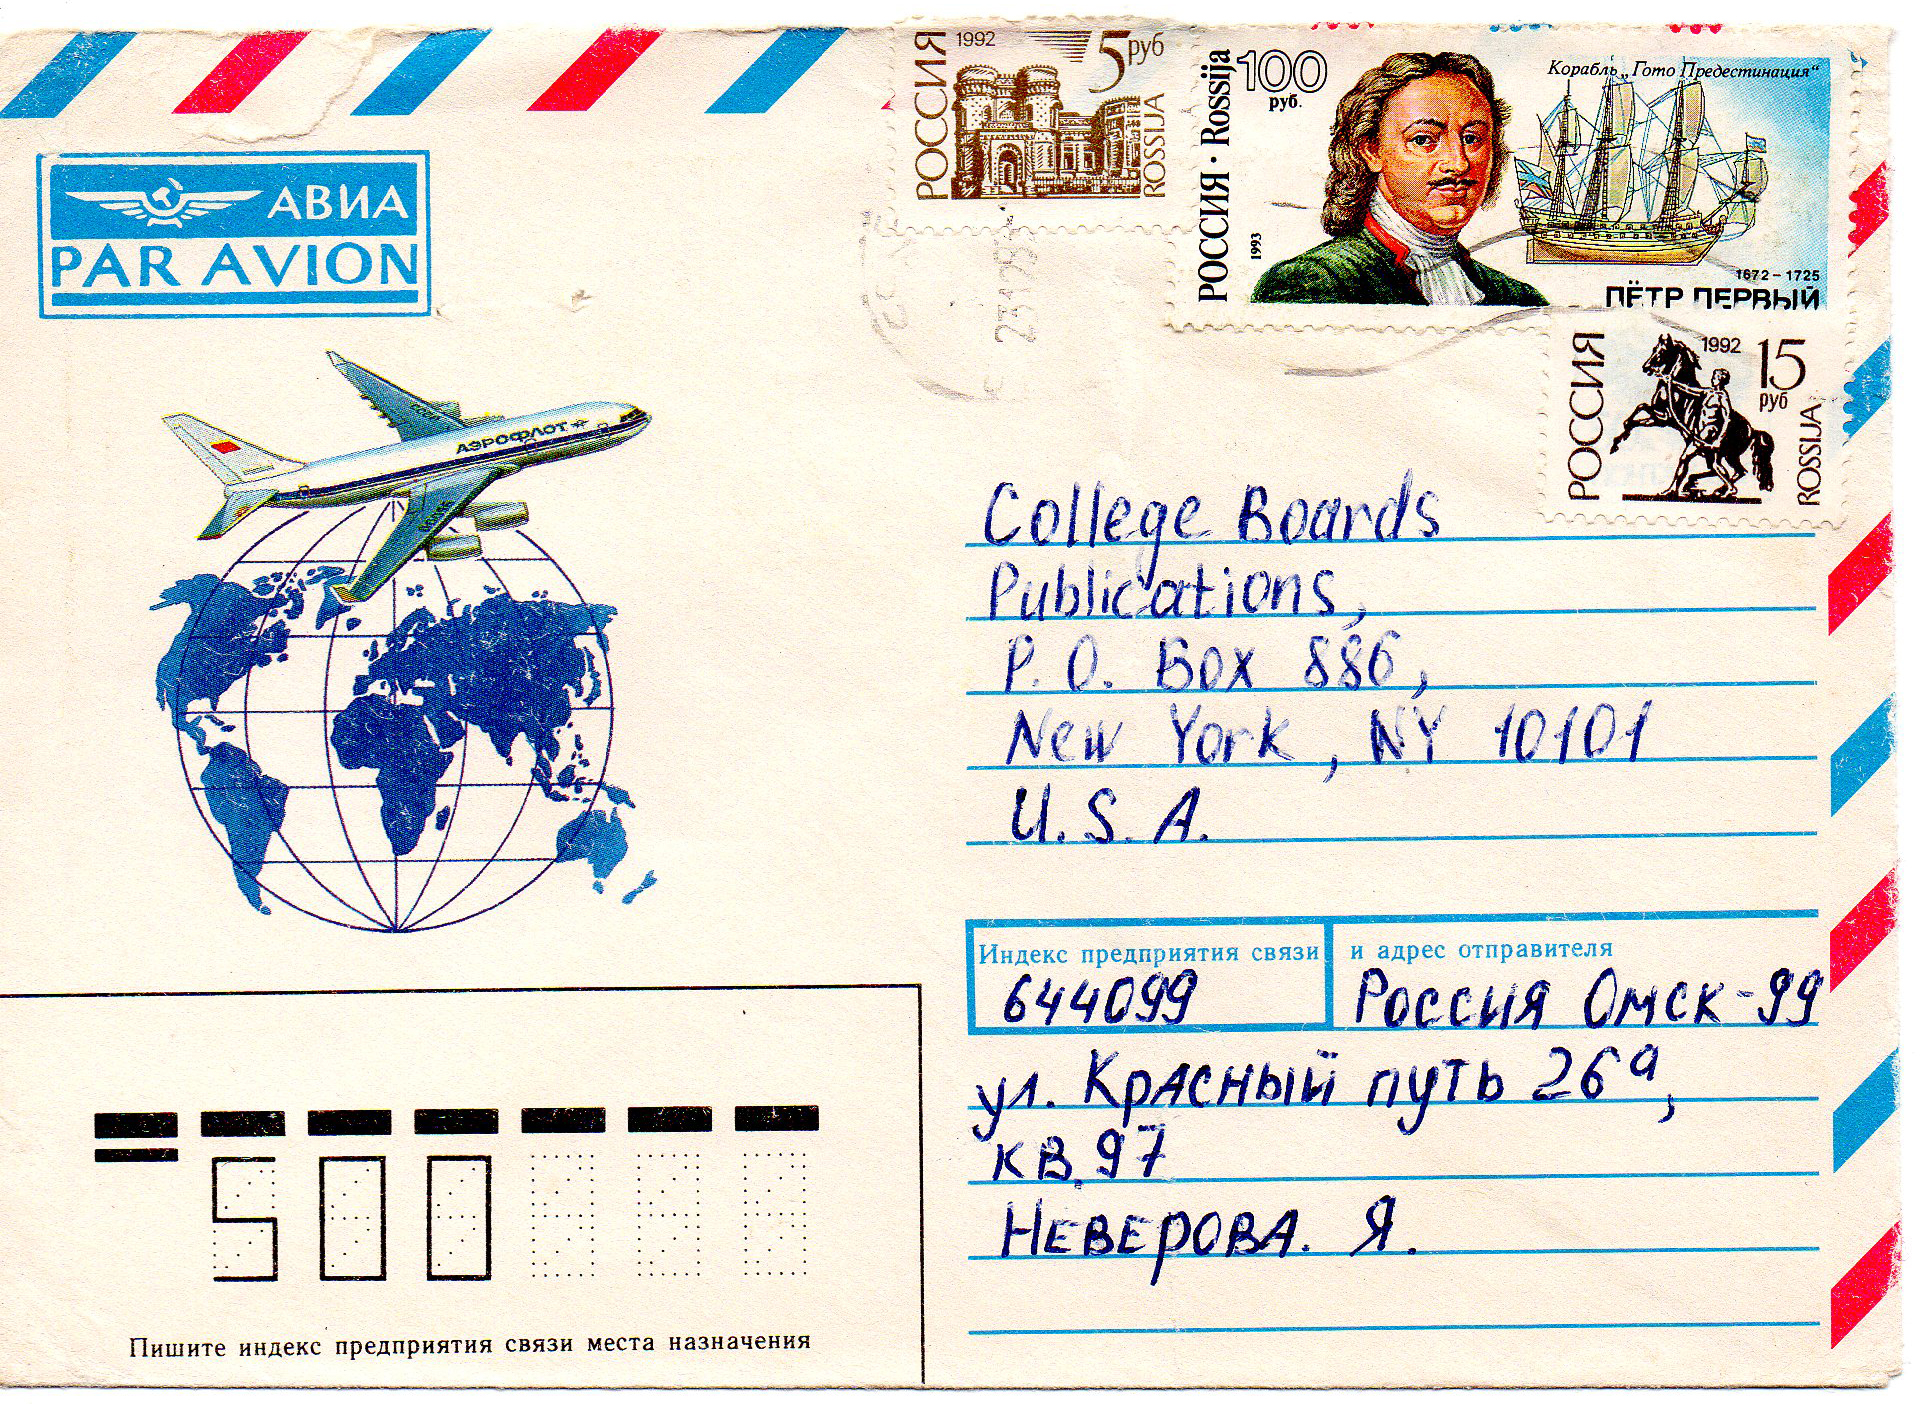 АВИА
PAR AVION
РОССИЯ
1992
5 руб
ROSSIJA
РОССИЯ · Rossija
100
руб.
1993
Корабль „Гото Предестинация“
1672 – 1725
ПЁТР ПЕРВЫЙ
РОССИЯ
1992
15
руб
ROSSIJA
АЭРОФЛОТ
College Boards
Publications,
P. O. Box 886,
New York, NY 10101
U. S. A.
Индекс предприятия связи и адрес отправителя
644099 Россия Омск-99
ул. Красный путь 26а,
кв. 97
Неверова. Я.
500
Пишите индекс предприятия связи места назначения